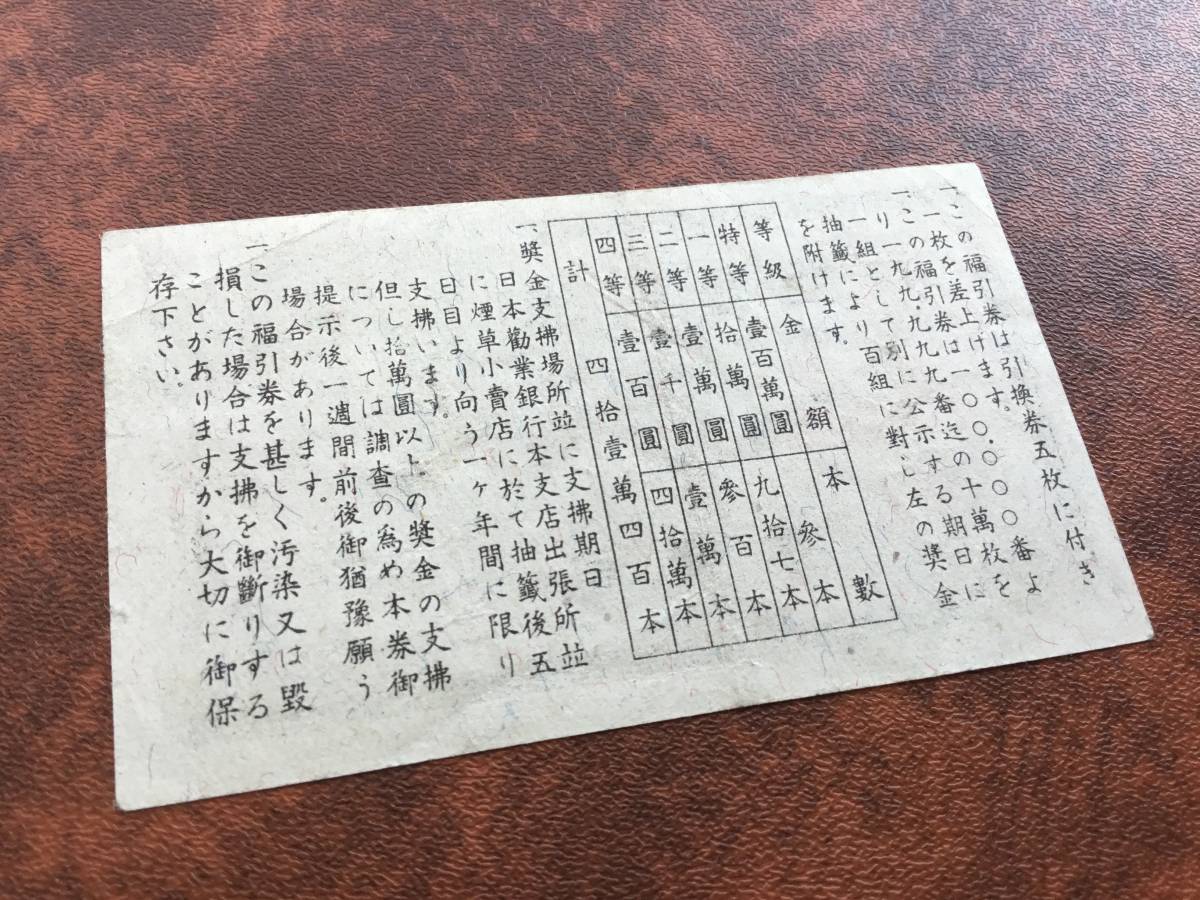 一、この福引券は引換券五枚に付き
一枚を差上げます。
一、この福引券は一〇〇.〇〇〇番よ
り一九九.九九九番迄の十萬枚を
一組として別に公示する期日に
抽籤により百組に對し左の奬金
を附けます。
等級 金額 本數
特等 壹百萬圓 參本
一等 拾萬圓 九拾七本
二等 壹萬圓 參百本
三等 壹千圓 壹萬本
四等 壹百圓 四拾萬本
計 四拾壹萬四百本
一、奬金支拂場所並に支拂期日
日本勸業銀行本支店出張所並
に煙草小賣店に於て抽籤後五
日目より向う一ヶ年間に限り
支拂います。
但し拾萬圓以上の奬金の支拂
については調査の爲め本券御
提示後一週間前後御猶豫願う
場合があります。
一、この福引券を甚しく汚染又は毀
損した場合は支拂を御斷りする
ことがありますから大切に御保
存下さい。